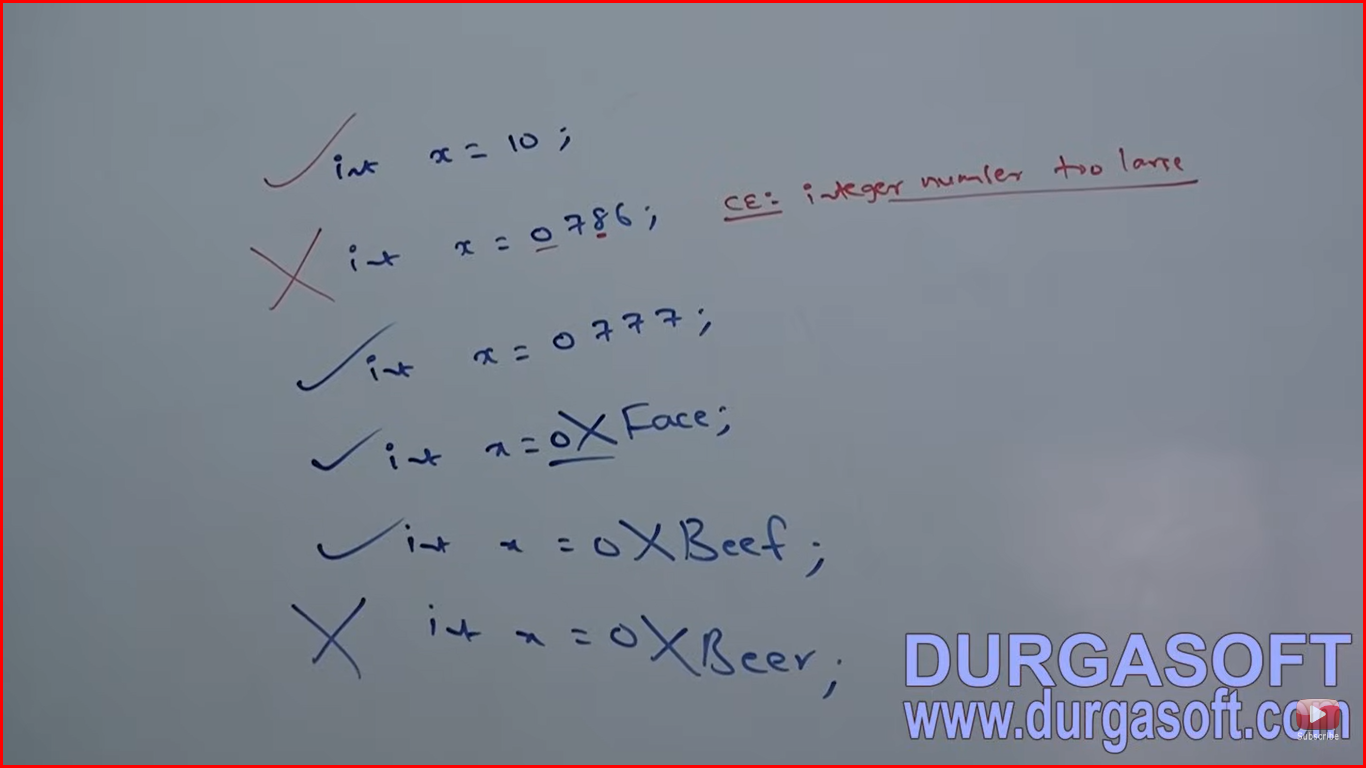 int x = 10 ;
int x = 0786 ; CE: integer number too large
int x = 0777 ;
int x = 0XFace ;
int x = 0XBeef ;
int x = 0XBeer ;
DURGASOFT
www.durgasoft.com
Subscribe